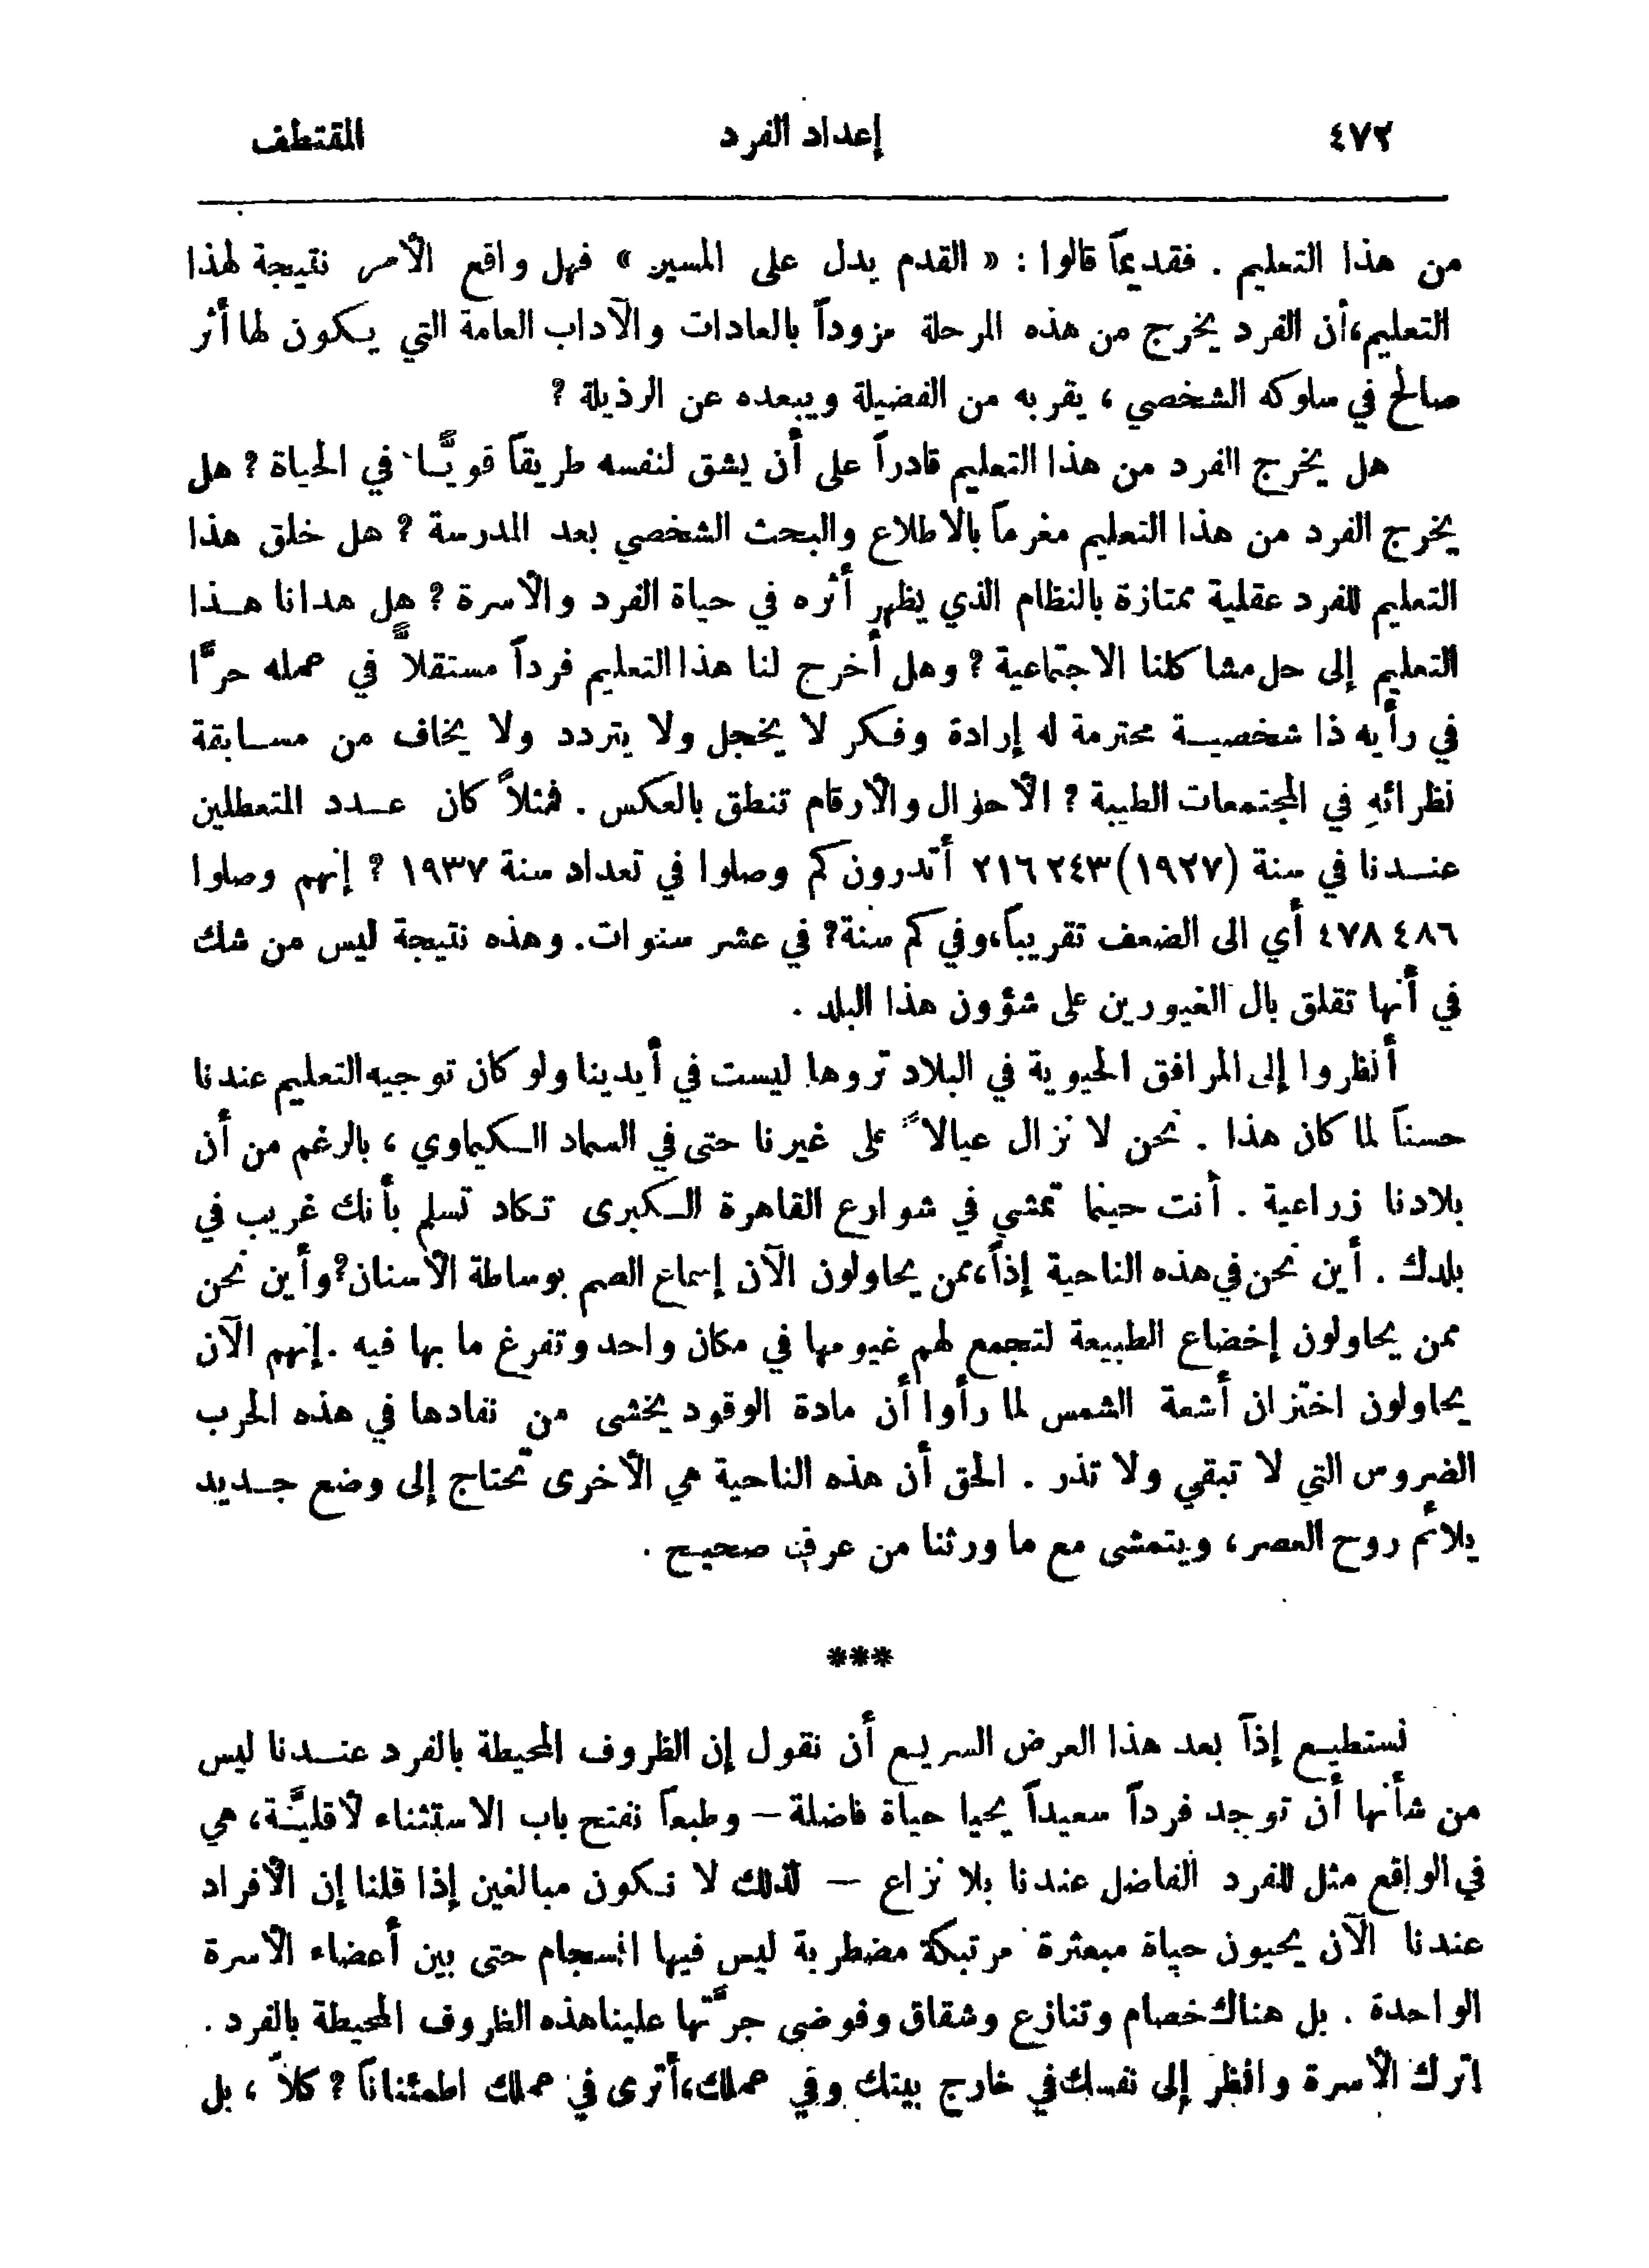 ٤٧٢ إعداد الفرد المقتطف
من هذا التعليم . فقديماً قالوا : « القدم يدل على المسير » فهل واقع الأمر نتيجة لهذا
التعليم،أن الفرد يخرج من هذه المرحلة مزوداً بالعادات والآداب العامة التي يكون لها أثر
صالح في سلوكه الشخصي ، يقربه من الفضيلة ويبعده عن الرذيلة ؟
هل يخرج الفرد من هذا التعليم قادراً على أن يشق لنفسه طريقاً قويًّا في الحياة ؟ هل
يخرج الفرد من هذا التعليم مغرماً بالاطلاع والبحث الشخصي بعد المدرسة ؟ هل خلق هذا
التعليم للفرد عقلية ممتازة بالنظام الذي يظهر أثره في حياة الفرد والأسرة ؟ هل هدانا هذا
التعليم إلى حل مشاكلنا الاجتماعية ؟ وهل أخرج لنا هذا التعليم فرداً مستقلاًّ في عمله حرًّا
في رأيه ذا شخصية محترمة له إرادة وفكر لا يخجل ولا يتردد ولا يخاف من مسابقة
نظرائهِ في المجتمعات الطيبة ؟ الأحوال والأرقام تنطق بالعكس . فمثلاً كان عدد المتعطلين
عندنا في سنة (١٩٢٧) ٢٤٣ ٢١٦ أتدرون كم وصلوا في تعداد سنة ١٩٣٧ ؟ إنهم وصلوا
٤٨٦ ٤٧٨ أي الى الضعف تقريباً،وفي كم سنة؟ في عشر سنوات. وهذه نتيجة ليس من شك
في أنها تقلق بال الغيورين على شؤون هذا البلد .
أنظروا إلى المرافق الحيوية في البلاد تروها ليست في أيدينا ولو كان توجيه التعليم عندنا
حسناً لما كان هذا . نحن لا نزال عيالاً على غيرنا حتى في السماد الكيماوي ، بالرغم من أن
بلادنا زراعية . أنت حينما تمشي في شوارع القاهرة الكبرى تكاد تسلم بأنك غريب في
بلدك . أين نحن في هذه الناحية إذاً،ممن يحاولون الآن إسماع الصم بوساطة الأسنان؟وأين نحن
ممن يحاولون إخضاع الطبيعة لتجمع لهم غيومها في مكان واحد وتفرغ ما بها فيه .إنهم الآن
يحاولون اختزان أشعة الشمس لما رأوا أن مادة الوقود يخشى من نفادها في هذه الحرب
الضروس التي لا تبقي ولا تذر . الحق أن هذه الناحية هي الأخرى تحتاج إلى وضع جديد
يلائم روح العصر ، ويتمشى مع ما ورثنا من عرف صحيح .
***
نستطيع إذاً بعد هذا العرض السريع أن نقول إن الظروف المحيطة بالفرد عندنا ليس
من شأنها أن توجد فرداً سعيداً يحيا حياة فاضلة — وطبعاً نفتح باب الاستثناء لأقليَّة، هي
في الواقع مثل للفرد الفاضل عندنا بلا نزاع — لذلك لا نكون مبالغين إذا قلنا إن الأفراد
عندنا الآن يحيون حياة مبعثرة مرتبكة مضطربة ليس فيها انسجام حتى بين أعضاء الأسرة
الواحدة . بل هناك خصام وتنازع وشقاق وفوضى جرَّتها علينا هذه الظروف المحيطة بالفرد .
اترك الأسرة وانظر إلى نفسك في خارج بيتك وفي عملك،أترى في عملك اطمئناناً ؟ كلاَّ ، بل